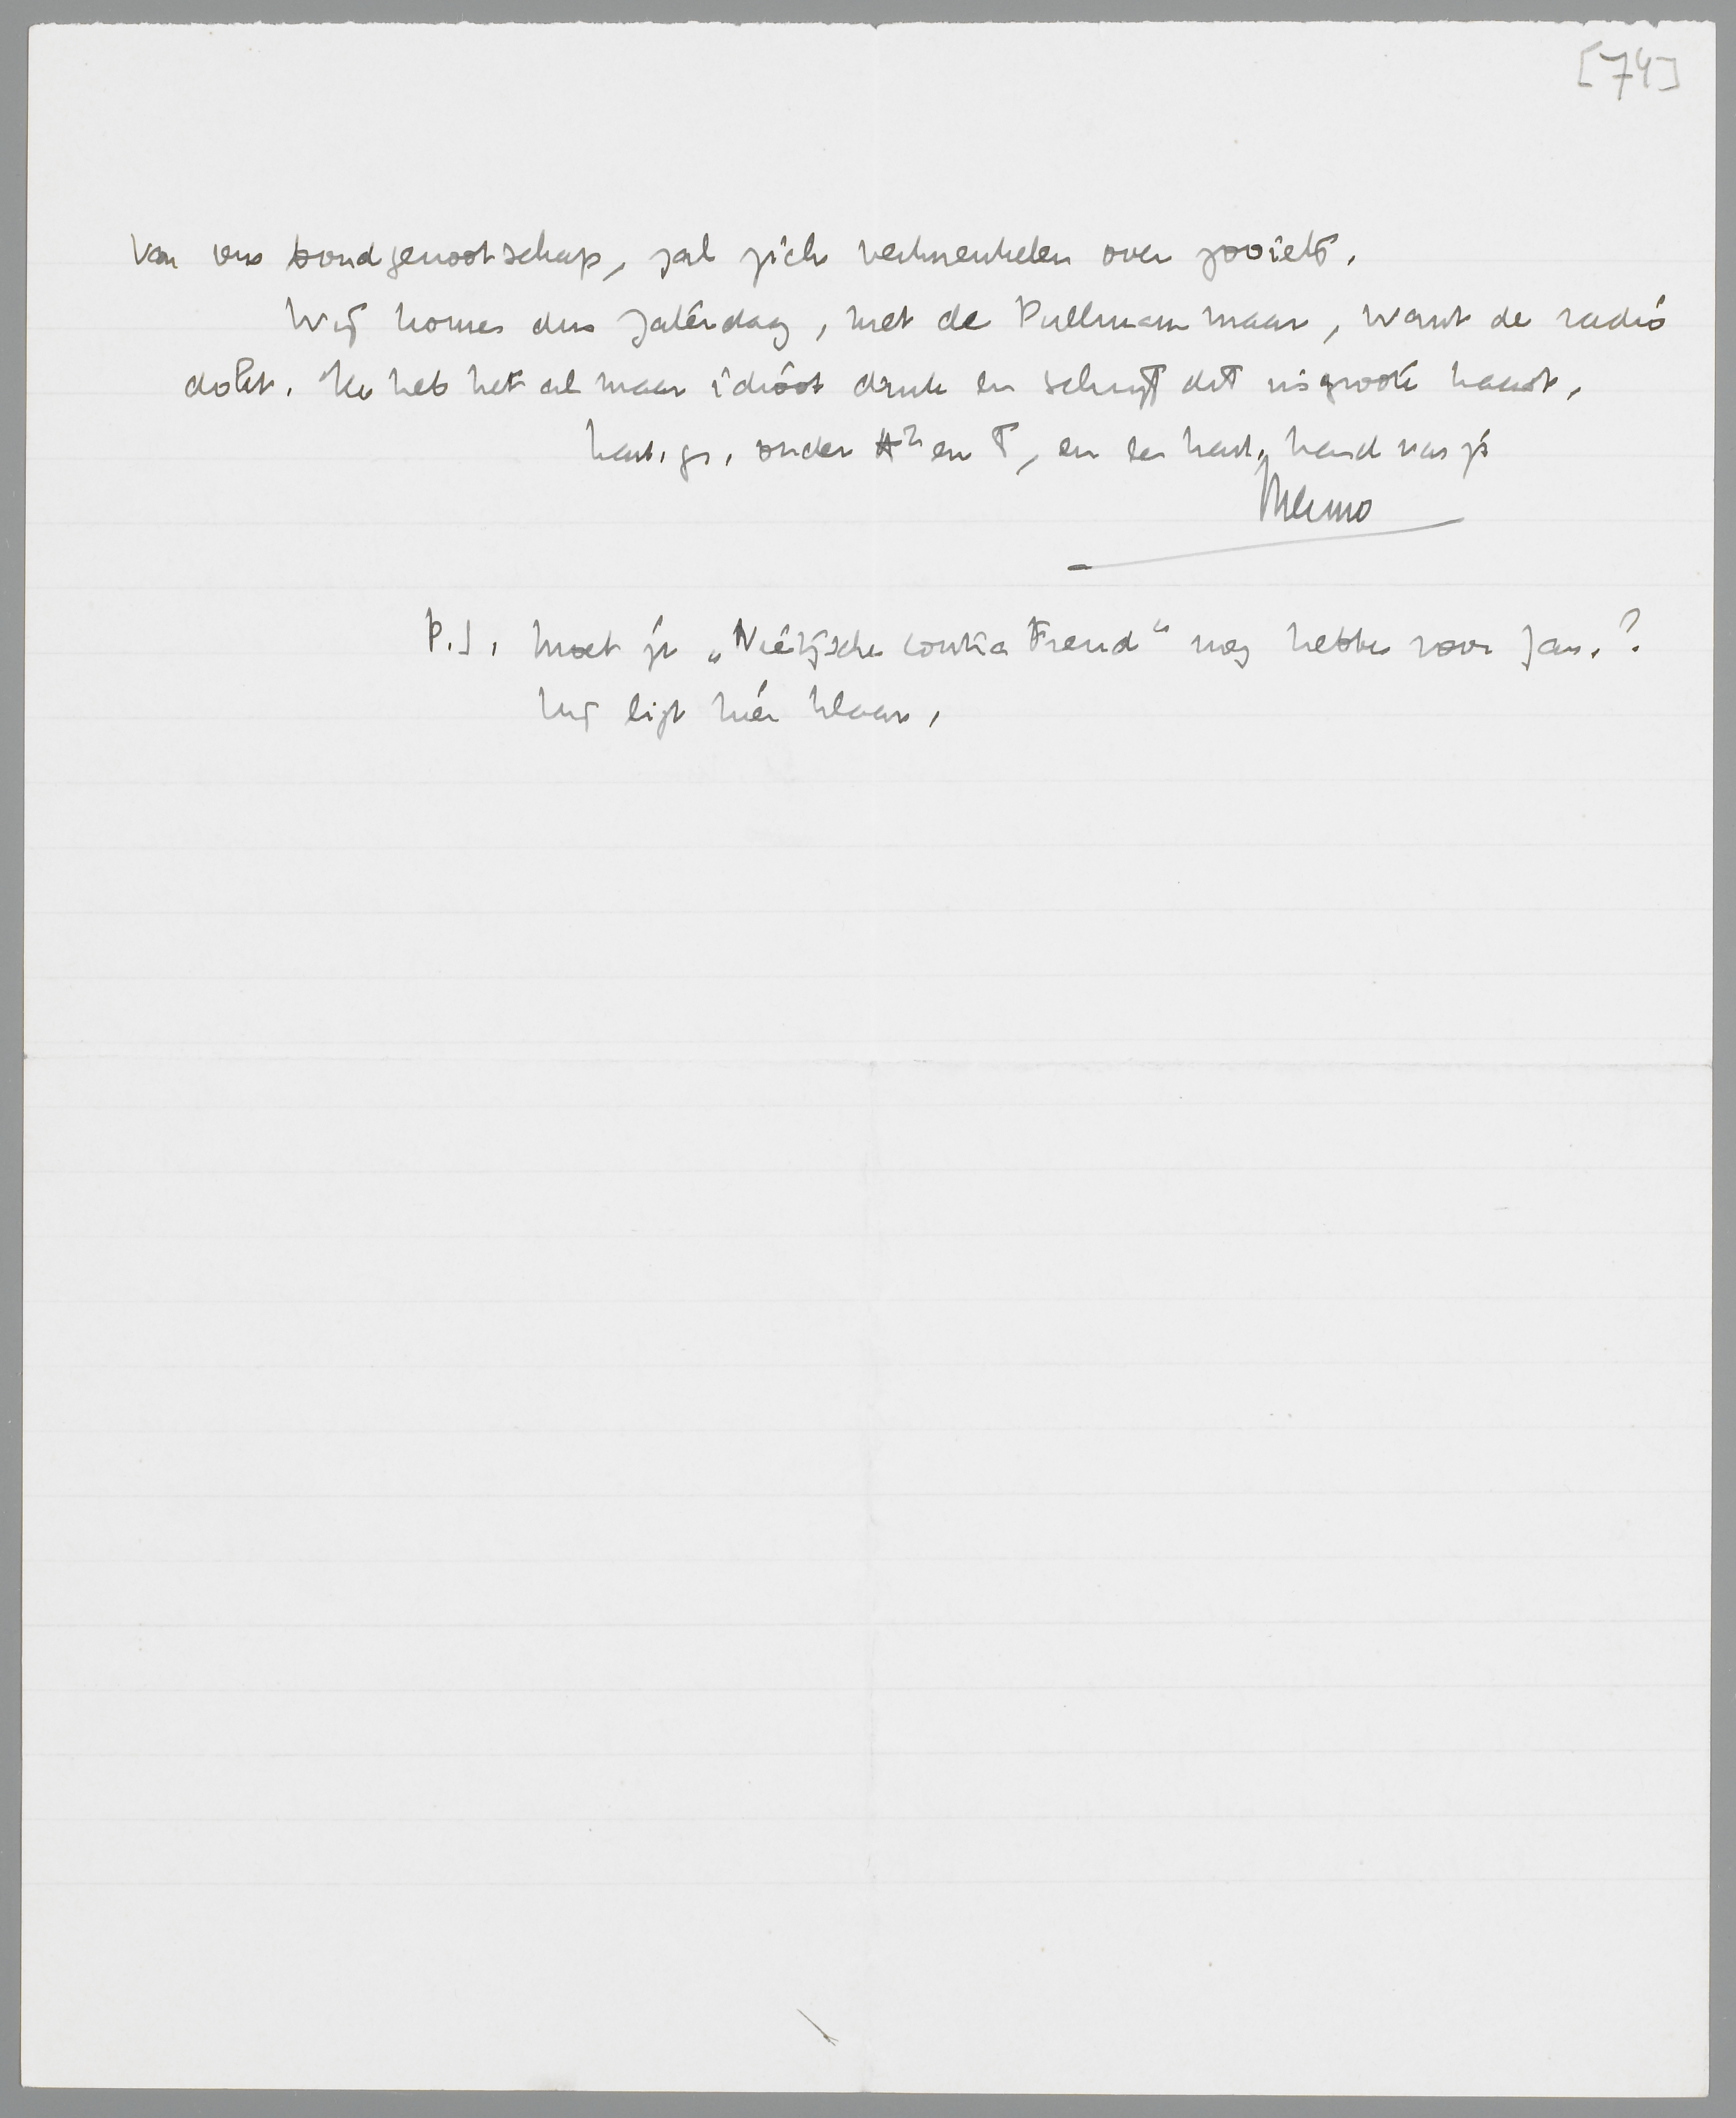 [74]
van ons bondgenootschap, zal zich verkneukelen over zooiets.
Wij komen dus Zaterdag, met de Pullman maar, want de radio
dokt. Ik heb het al maar idioot druk en schrijf dit in groote haast.
hart. gr. onder en T, en een hart. hand van je
Menno
P.S. Moet je „Nietzsche contra Freud" nog hebben voor Jan.?
Hij ligt hier klaar.